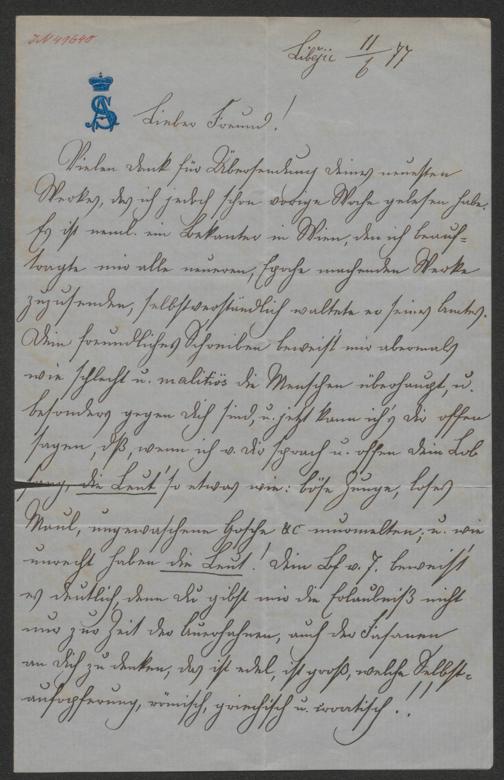 IN 49640
Libějic 11/6 77
AS
Lieber Freund!
Vielen Dank für Übersendung deines neuesten
Werkes, das ich jedoch schon vorige Woche gelesen habe.
Es ist neml. ein Bekanter in Wien, den ich beauf-
tragte mir alle neueren, Epoche machenden Werke
zuzusenden, selbstverständlich waltete er seines Amtes.
Dein freundliches Schreiben beweist mir abermals
wie schlecht u. malitiös die Menschen überhaupt, u.
besonders gegen dich sind, u. jetzt kann ich's dir offen
sagen, dß, wenn ich v. dir sprach u. offen dein Lob
sang, die Leut' so etwas wie: böse Zunge, loses
Maul, ungewaschene Gosche &c murmelten, u. wie
unrecht haben die Leut'! Dein Bf v. 7. beweist
es deutlich, denn du gibst mir die Erlaubniß nicht
nur zur Zeit der Auerhahnen, auch der Fasanen
an dich zu denken, das ist edel, ist groß, welche Selbst-
aufopferung, römisch, griechisch u. croatisch!!